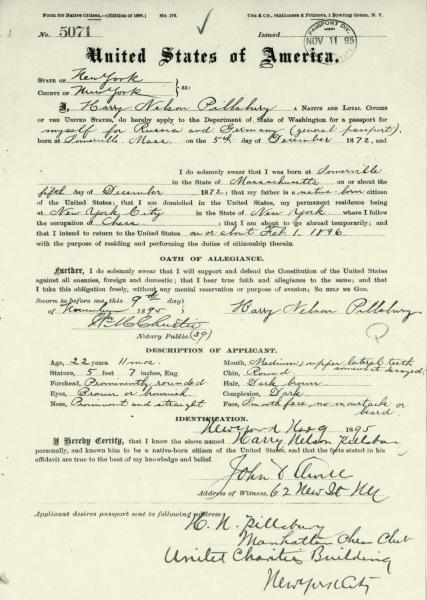 Form for Native Citizen.—[Edition of 1888.] No. 176. Ties & Co., Stationers & Printers, 1 Bowling Green, N. Y.
No. 5071 Issued
PASSPORT DIV.
NOV 11 95
United States of America.
STATE OF New York
COUNTY OF New York } ss:
I, Harry Nelson Pillsbury A NATIVE AND LOYAL CITIZEN
OF THE UNITED STATES, do hereby apply to the Department of State of Washington for a passport for
myself for Russia and Germany (general passport).
born at Somerville Mass. on the 5th day of December 1872, and
I do solemnly swear that I was born at Somerville
in the State of Massachusetts on or about the
fifth day of December 1872; that my father is a native born citizen
of the United States; that I am domiciled in the United States, my permanent residence being
at New York City in the State of New York where I follow
the occupation of Chess ; that I am about to go abroad temporarily; and
that I intend to return to the United States on or about Feb. 1, 1896.
with the purpose of residing and performing the duties of citizenship therein.
OATH OF ALLEGIANCE.
Further, I do solemnly swear that I will support and defend the Constitution of the United States
against all enemies, foreign and domestic; that I bear true faith and allegiance to the same; and
that I take this obligation freely, without any mental reservation or purpose of evasion; SO HELP ME GOD.
Sworn to before me, this 9th day
of November 1895 Harry Nelson Pillsbury
Wm. M. Christie
Notary Public. (39)
DESCRIPTION OF APPLICANT.
Age, 22 years 11 mos. Mouth, Medium; upper lateral teeth somewhat decayed.
Stature, 5 feet 7 inches, Eng. Chin, Round
Forehead, Prominently rounded Hair, Dark brown
Eyes, Brown or brownish Complexion, Dark
Nose, Prominent and straight Face, Smooth face, no moustache or beard
IDENTIFICATION.
New York Nov 9 1895
I Hereby Certify, that I know the above named Harry Nelson Pillsbury
personally, and known him to be a native-born citizen of the United States, and that the facts stated in his
affidavit are true to the best of my knowledge and belief.
John D
Address of Witness, 62 New St NY
Applicant desires passport sent to following address:
H. N. Pillsbury
Manhattan Chess Club
United Charities Building
New York City